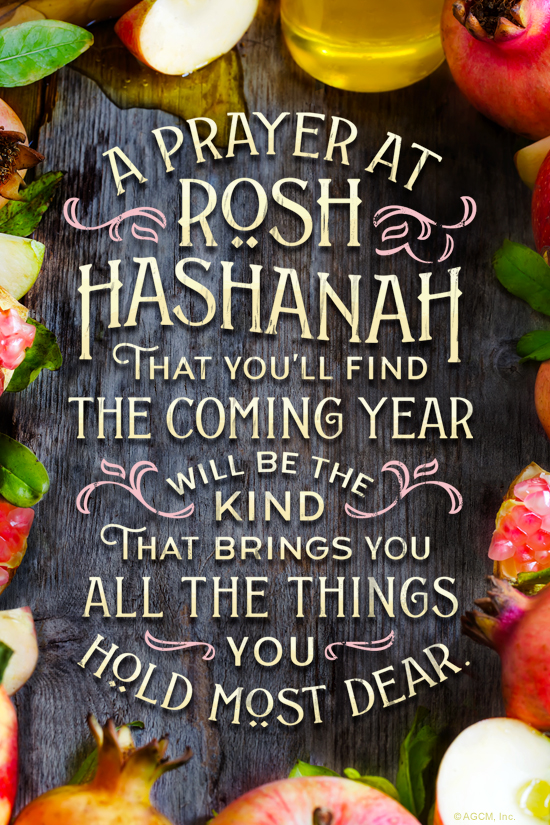 A PRAYER AT
ROSH
HASHANAH
THAT YOU'LL FIND
THE COMING YEAR
WILL BE THE
KIND
THAT BRINGS YOU
ALL THE THINGS
YOU
HOLD MOST DEAR.
© AGCM, Inc.